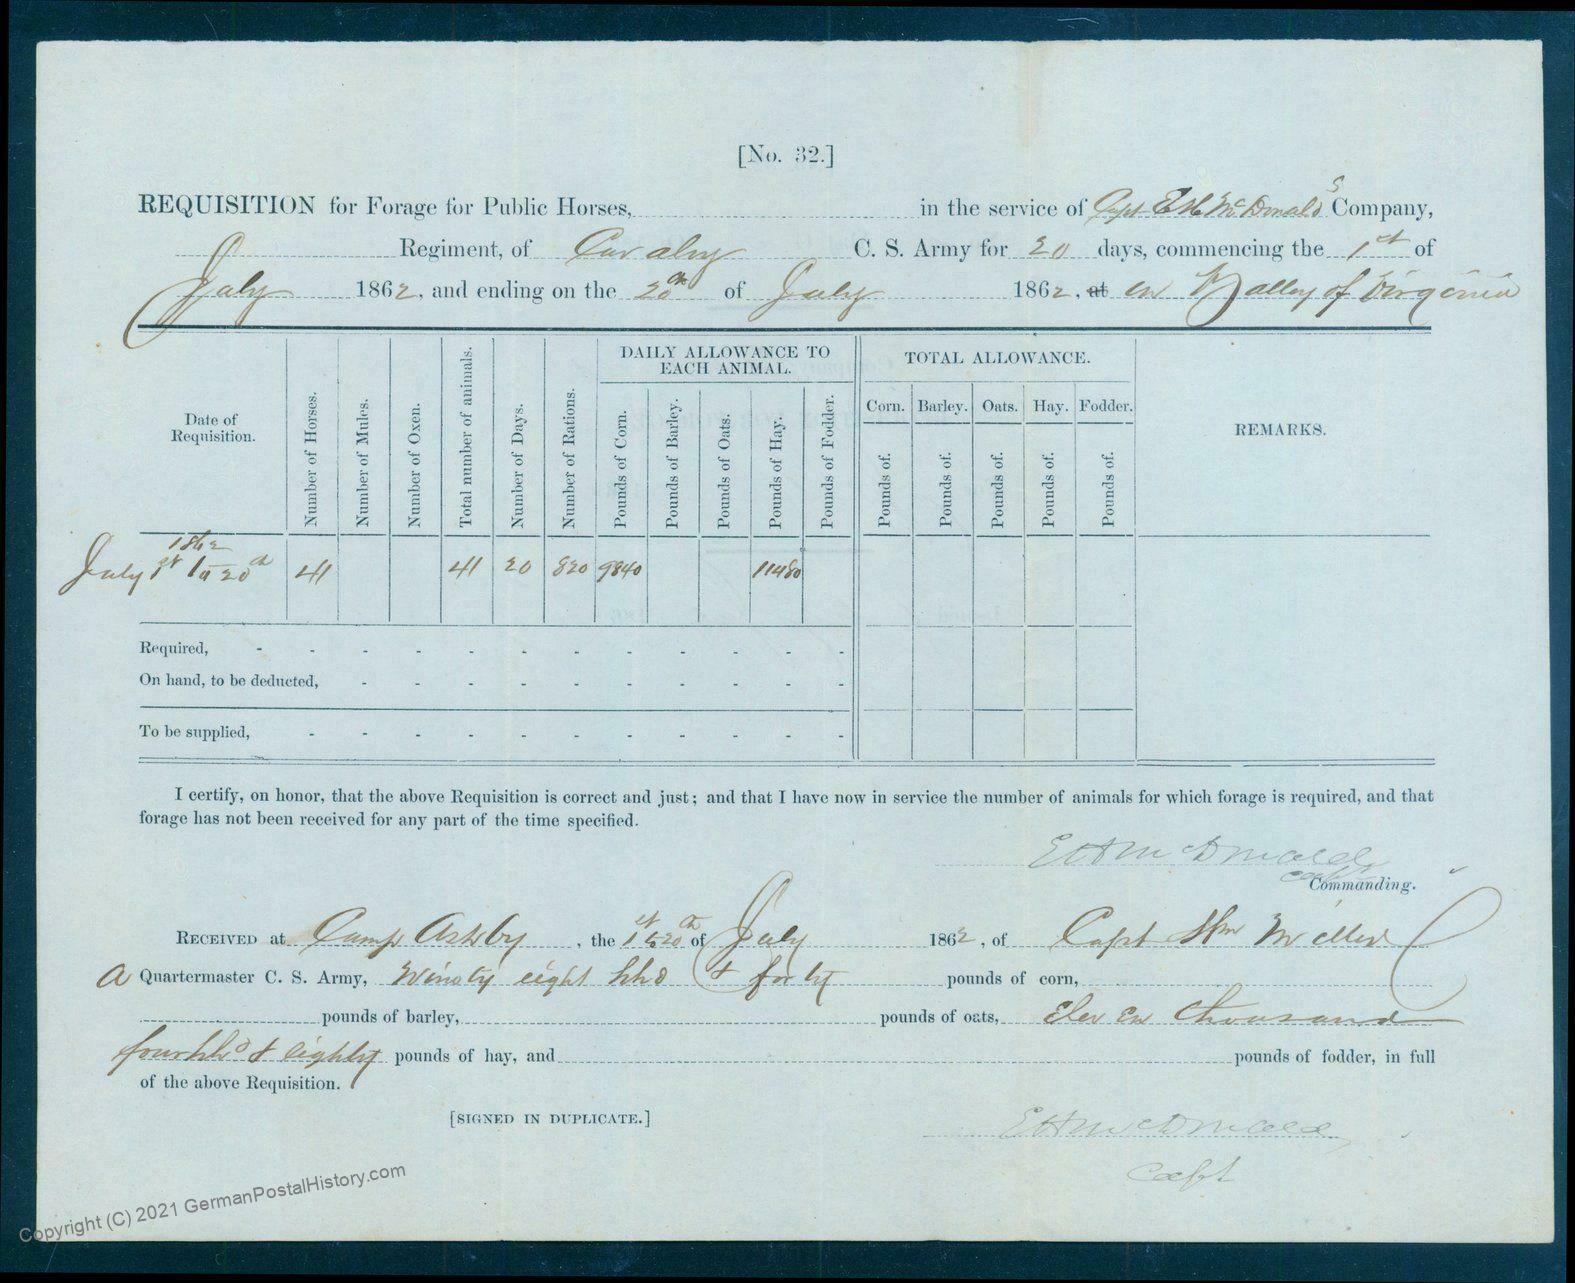 [No. 32.]
REQUISITION for Forage for Public Horses, in the service of Capt E H McDonalds Company,
Regiment, of Cavalry C. S. Army for 20 days, commencing the 1st of
July 1862, and ending on the 20th of July 1862, at in Valley of Virginia
DAILY ALLOWANCE TO EACH ANIMAL.
TOTAL ALLOWANCE.
Date of Requisition.
Number of Horses.
Number of Mules.
Number of Oxen.
Total number of animals.
Number of Days.
Number of Rations.
Pounds of Corn.
Pounds of Barley.
Pounds of Oats.
Pounds of Hay.
Pounds of Fodder.
Corn. Barley. Oats. Hay. Fodder.
Pounds of. Pounds of. Pounds of. Pounds of. Pounds of.
REMARKS.
1862
July 1st to 20th 41 41 20 820 9840 11480
Required,
On hand, to be deducted,
To be supplied,
I certify, on honor, that the above Requisition is correct and just; and that I have now in service the number of animals for which forage is required, and that
forage has not been received for any part of the time specified.
E H McDonald
Capt
Commanding.
RECEIVED at Camp Ashby, the 1st to 20th of July 1862, of Capt Wm Miller
A Quartermaster C. S. Army, Ninety eight hhd & forty pounds of corn,
pounds of barley, pounds of oats, Eleven thousand
four hhd & eighty pounds of hay, and pounds of fodder, in full
of the above Requisition.
[SIGNED IN DUPLICATE.]
E H McDonald
Capt
Copyright (C) 2021 GermanPostalHistory.com